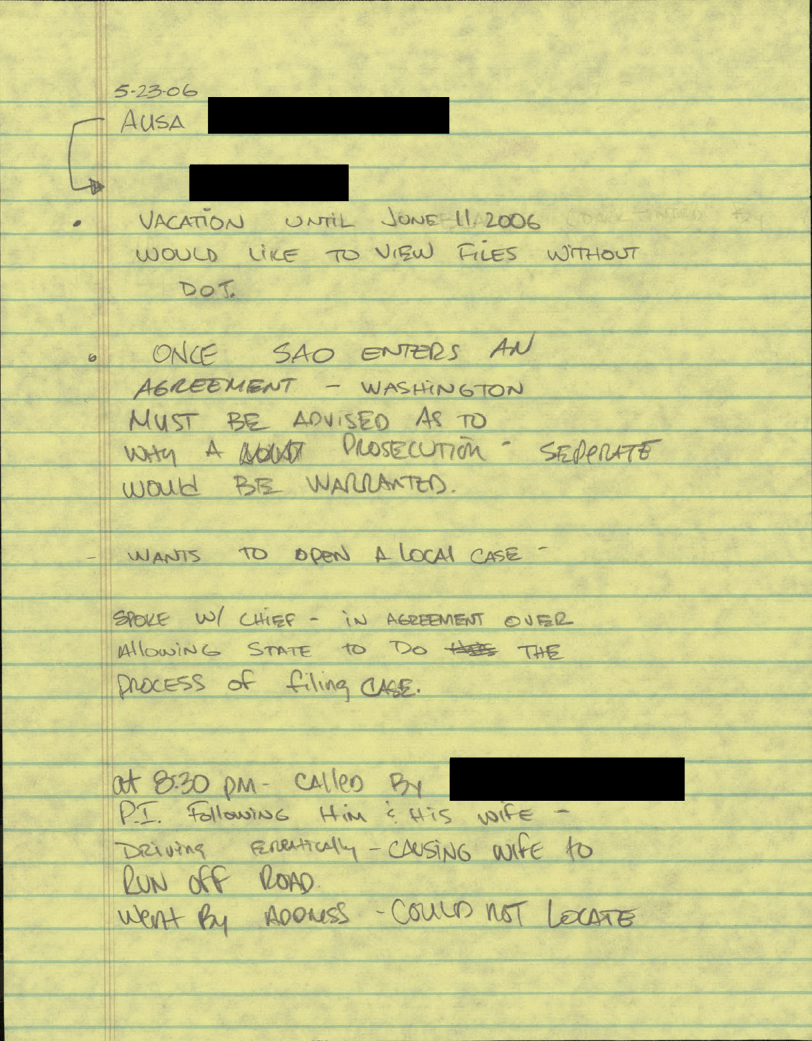 5-23-06
AUSA
VACATION UNTIL JUNE 11 2006
WOULD LIKE TO VIEW FILES WITHOUT
DOT.
ONCE SAO ENTERS AN
AGREEMENT - WASHINGTON
MUST BE ADVISED AS TO
WHY A PROSECUTION - SEPERATE
WOULD BE WARRANTED.
- WANTS TO OPEN A LOCAL CASE -
SPOKE W/ CHIEF - IN AGREEMENT OVER
ALLOWING STATE TO DO THE
PROCESS OF filing CASE.
at 8:30 PM - CALLED BY
P.I. FOLLOWING HIM & HIS WIFE -
DRIVING ERRATICALLY - CAUSING WIFE TO
RUN OFF ROAD.
WENT BY ADDRESS - COULD NOT LOCATE